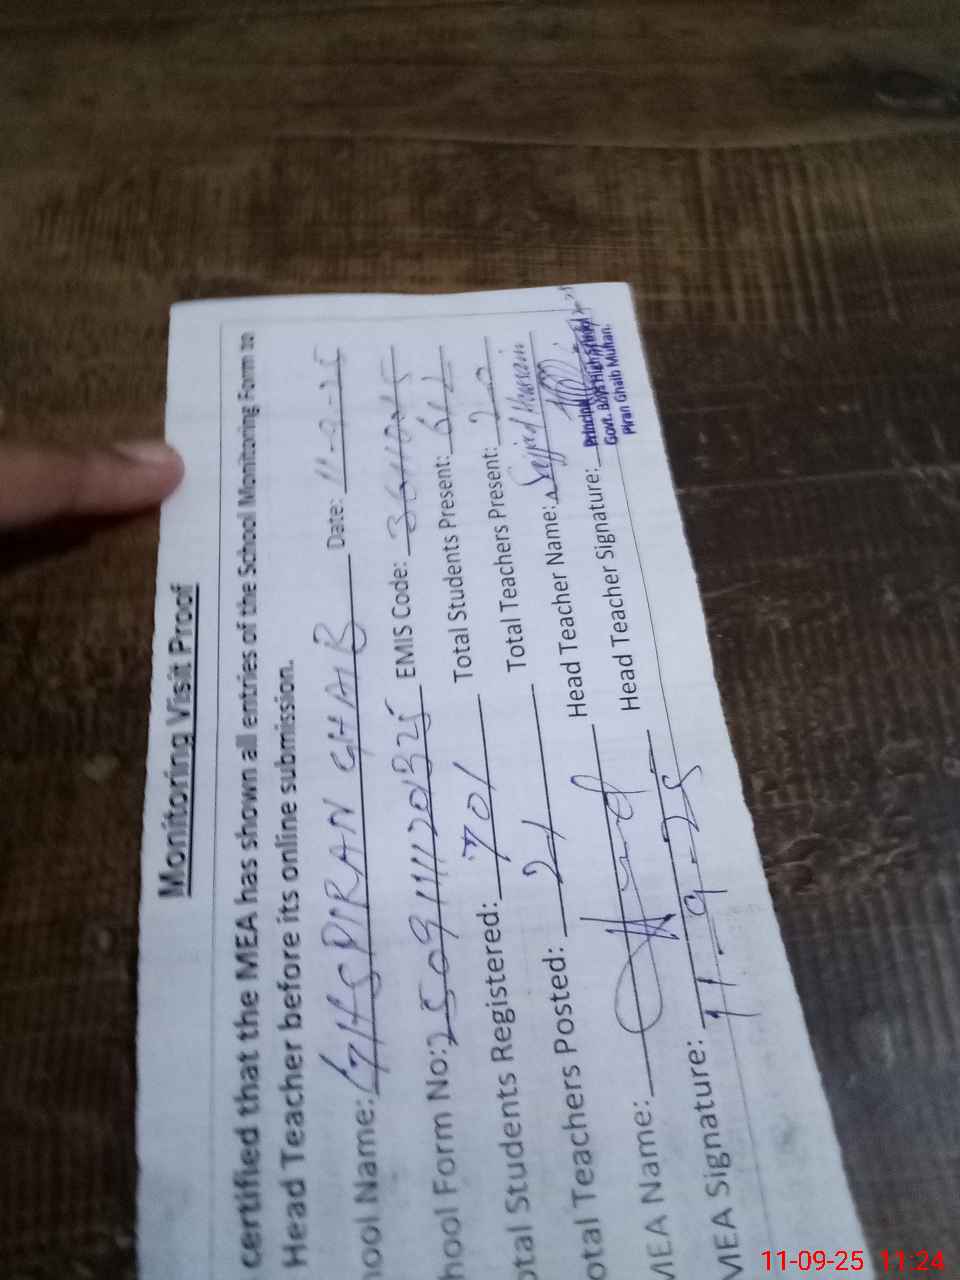 Monitoring Visit Proof
certified that the MEA has shown all entries of the School Monitoring Form to
Head Teacher before its online submission.
hool Name: GHS PIRAN GHAIB Date: 11-9-25
hool Form No: EMIS Code:
otal Students Registered: 701 Total Students Present:
otal Teachers Posted: 21 Total Teachers Present:
MEA Name: Head Teacher Name: Sajjad Hussain
MEA Signature: Head Teacher Signature:
11-9-25
Principal
Govt. Boys High School
Piran Ghaib Multan.
11-09-25 11:24